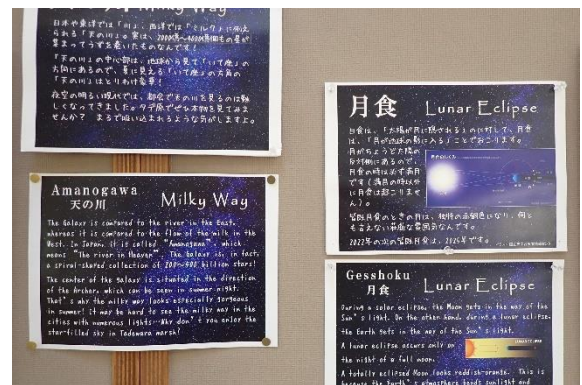 Milky Way
日本や東洋では「川」、西洋では「ミルク」に例え
られる「天の川」。実は、2000億～4000億個もの星が
集まってうずを巻いたものなんです！
「天の川」の中心部は、地球から見て「いて座」の
方向にあるので、夏に見える「いて座」の方角の
「天の川」はとりわけ豪華！
夜空の明るい現代では、都会で天の川を見るのは難
しくなってきました。夕デ原でぜひ本物を見てみま
せんか？ まるで吸い込まれるような気がしますよ。
Amanogawa
天の川
Milky Way
The Galaxy is compared to the river in the East,
whereas it is compared to the flow of the milk in the
West. In Japan, it is called "Amanogawa", which
means "The river in Heaven". The Galaxy is, in fact,
a spiral-shaped collection of 200～400 billion stars!
The center of the galaxy is situated in the direction
of the Archer, which can be seen in summer night.
That's why the milky way looks especially gorgeous
in summer! It may be hard to see the milky way in the
cities with numerous lights. Why don't you enjoy the
star-filled sky in Tadewara marsh?
月食 Lunar Eclipse
日食は、「太陽が月に隠される」のに対して、月食
は、「月が地球の影に入る」ことでおこります。
月がちょうど太陽の
反対側にあるので、
月食の時は必ず満月
です（満月の時以外
に月食は起こりませ
ん）。
皆既月食のときの月は、独特の赤銅色になり、何と
も言えない幻想的な雰囲気なんです。
2022年の次の皆既月食は、2025年です。
Gesshoku
月食
Lunar Eclipse
During a solar eclipse, the Moon gets in the way of the
Sun's light. On the other hand, during a lunar eclipse,
the Earth gets in the way of the Sun's light.
A lunar eclipse occurs only on
the night of a full moon.
A totally eclipsed Moon looks reddish-orange. This is
because the Earth's atmosphere bends sunlight and